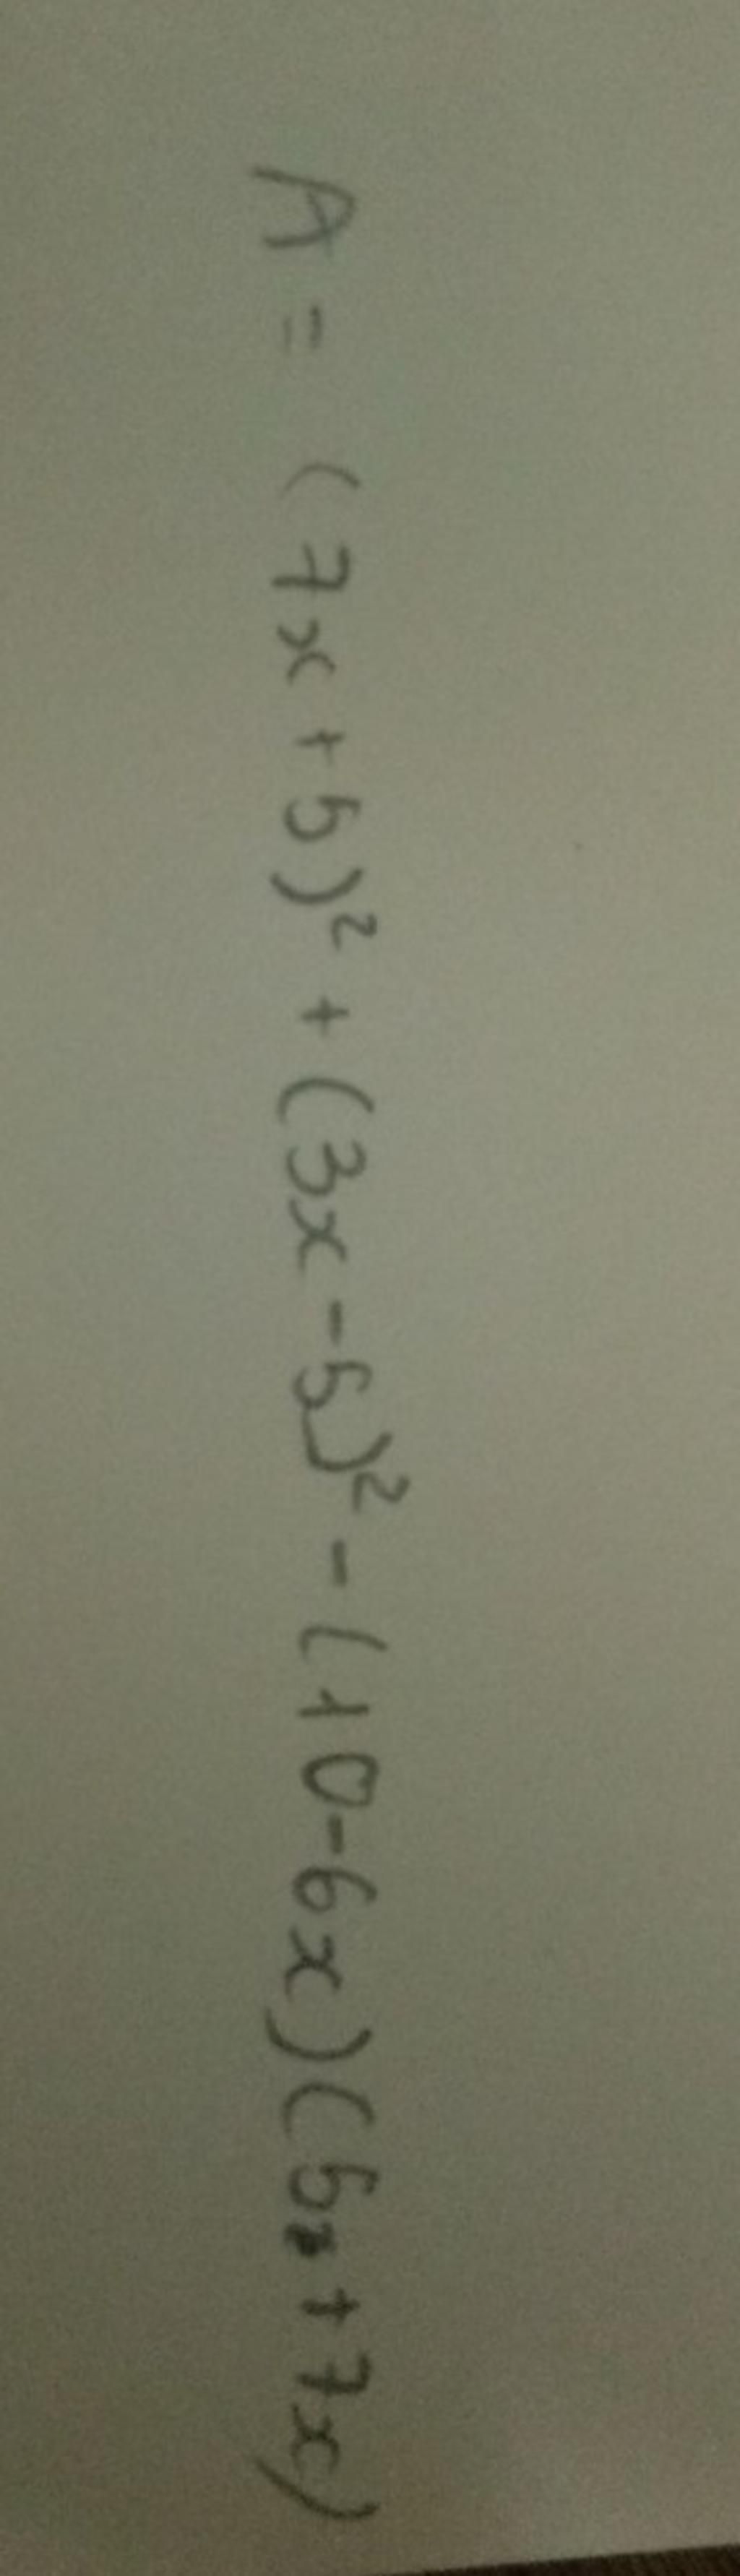 A = (7x+5)² + (3x-5)² - (10-6x)(5+7x)